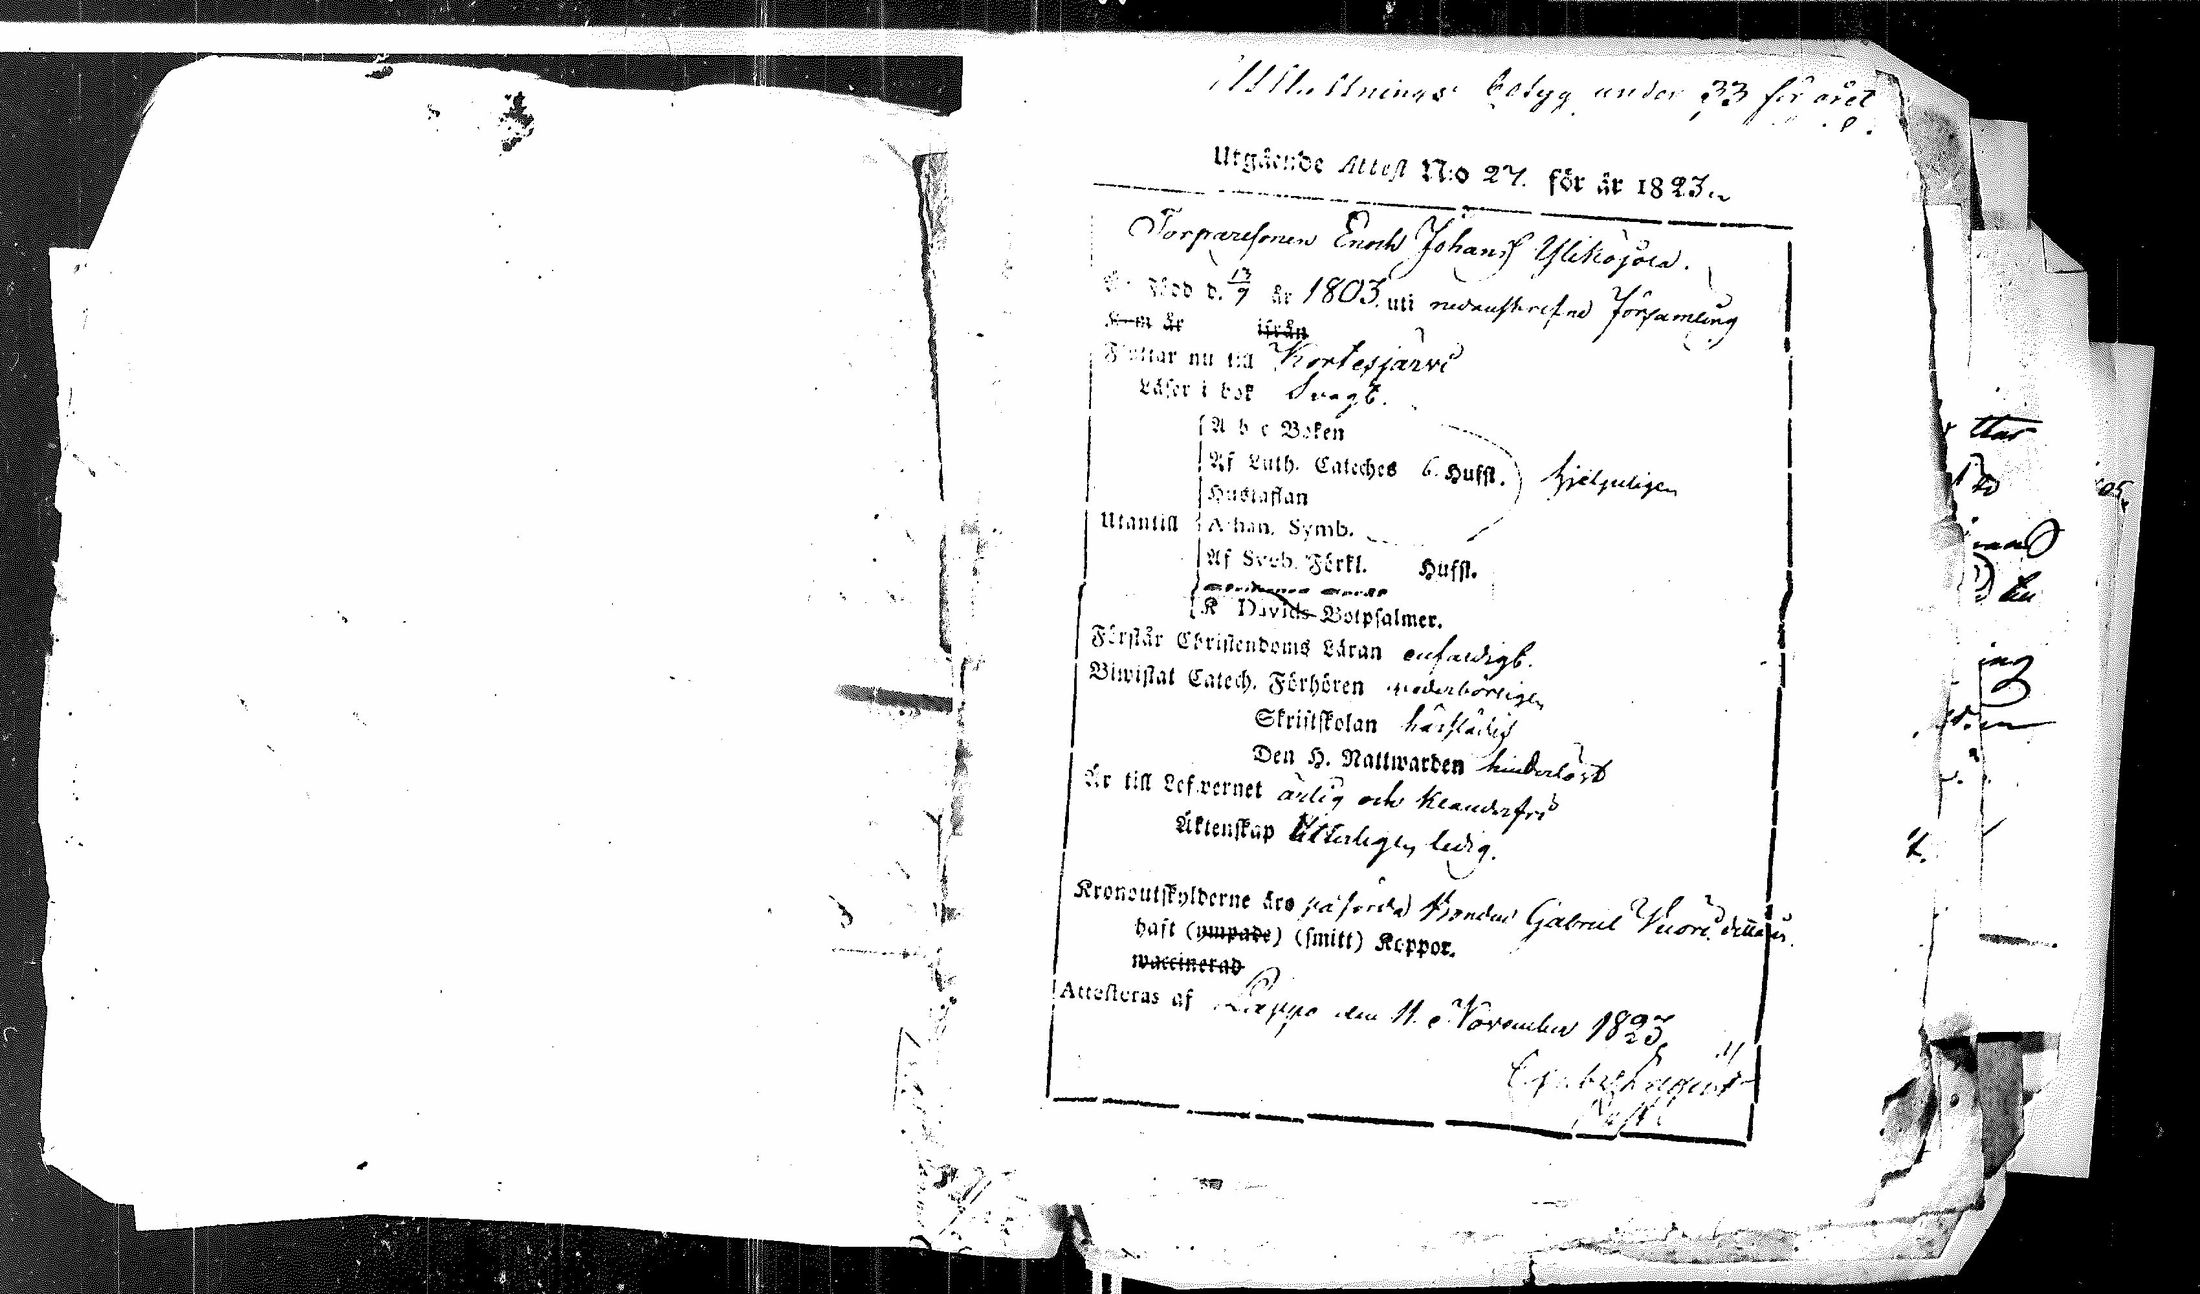 betyg under 33 för året
Utgående Attest N:o 27. för år 1823.
Torparesonen Enoch Johans Ylikojola.
Är Född d. 13/9 år 1803. uti nedanskrefne församling
Kom är ifrån
Flyttar nu till Kortesjärvi
Läser i bok Svagt.
A b c Boken
Af Luth. Cateches 6. Hufst. hjelpeligen
Hustaflan
Utantill Athan. Symb.
Af Sveb. Förkl. Hufst.
K Davids Botpsalmer.
Förstår Christendoms Läran enfaldigt.
Biwistat Catech. Förhören vederbörligen
Skriftskolan härstädes
Den H. Nattwarden hinderlöst
Är till Lefwernet ärlig och klanderfri
Äktenskap Ytterligen ledig.
Kronoutskylderne äro påförda Bonden Gabriel Vuori detta år.
haft (ympade) (smitt) Koppor.
waccinerad
Attesteras af Lappo den 11. November 1823